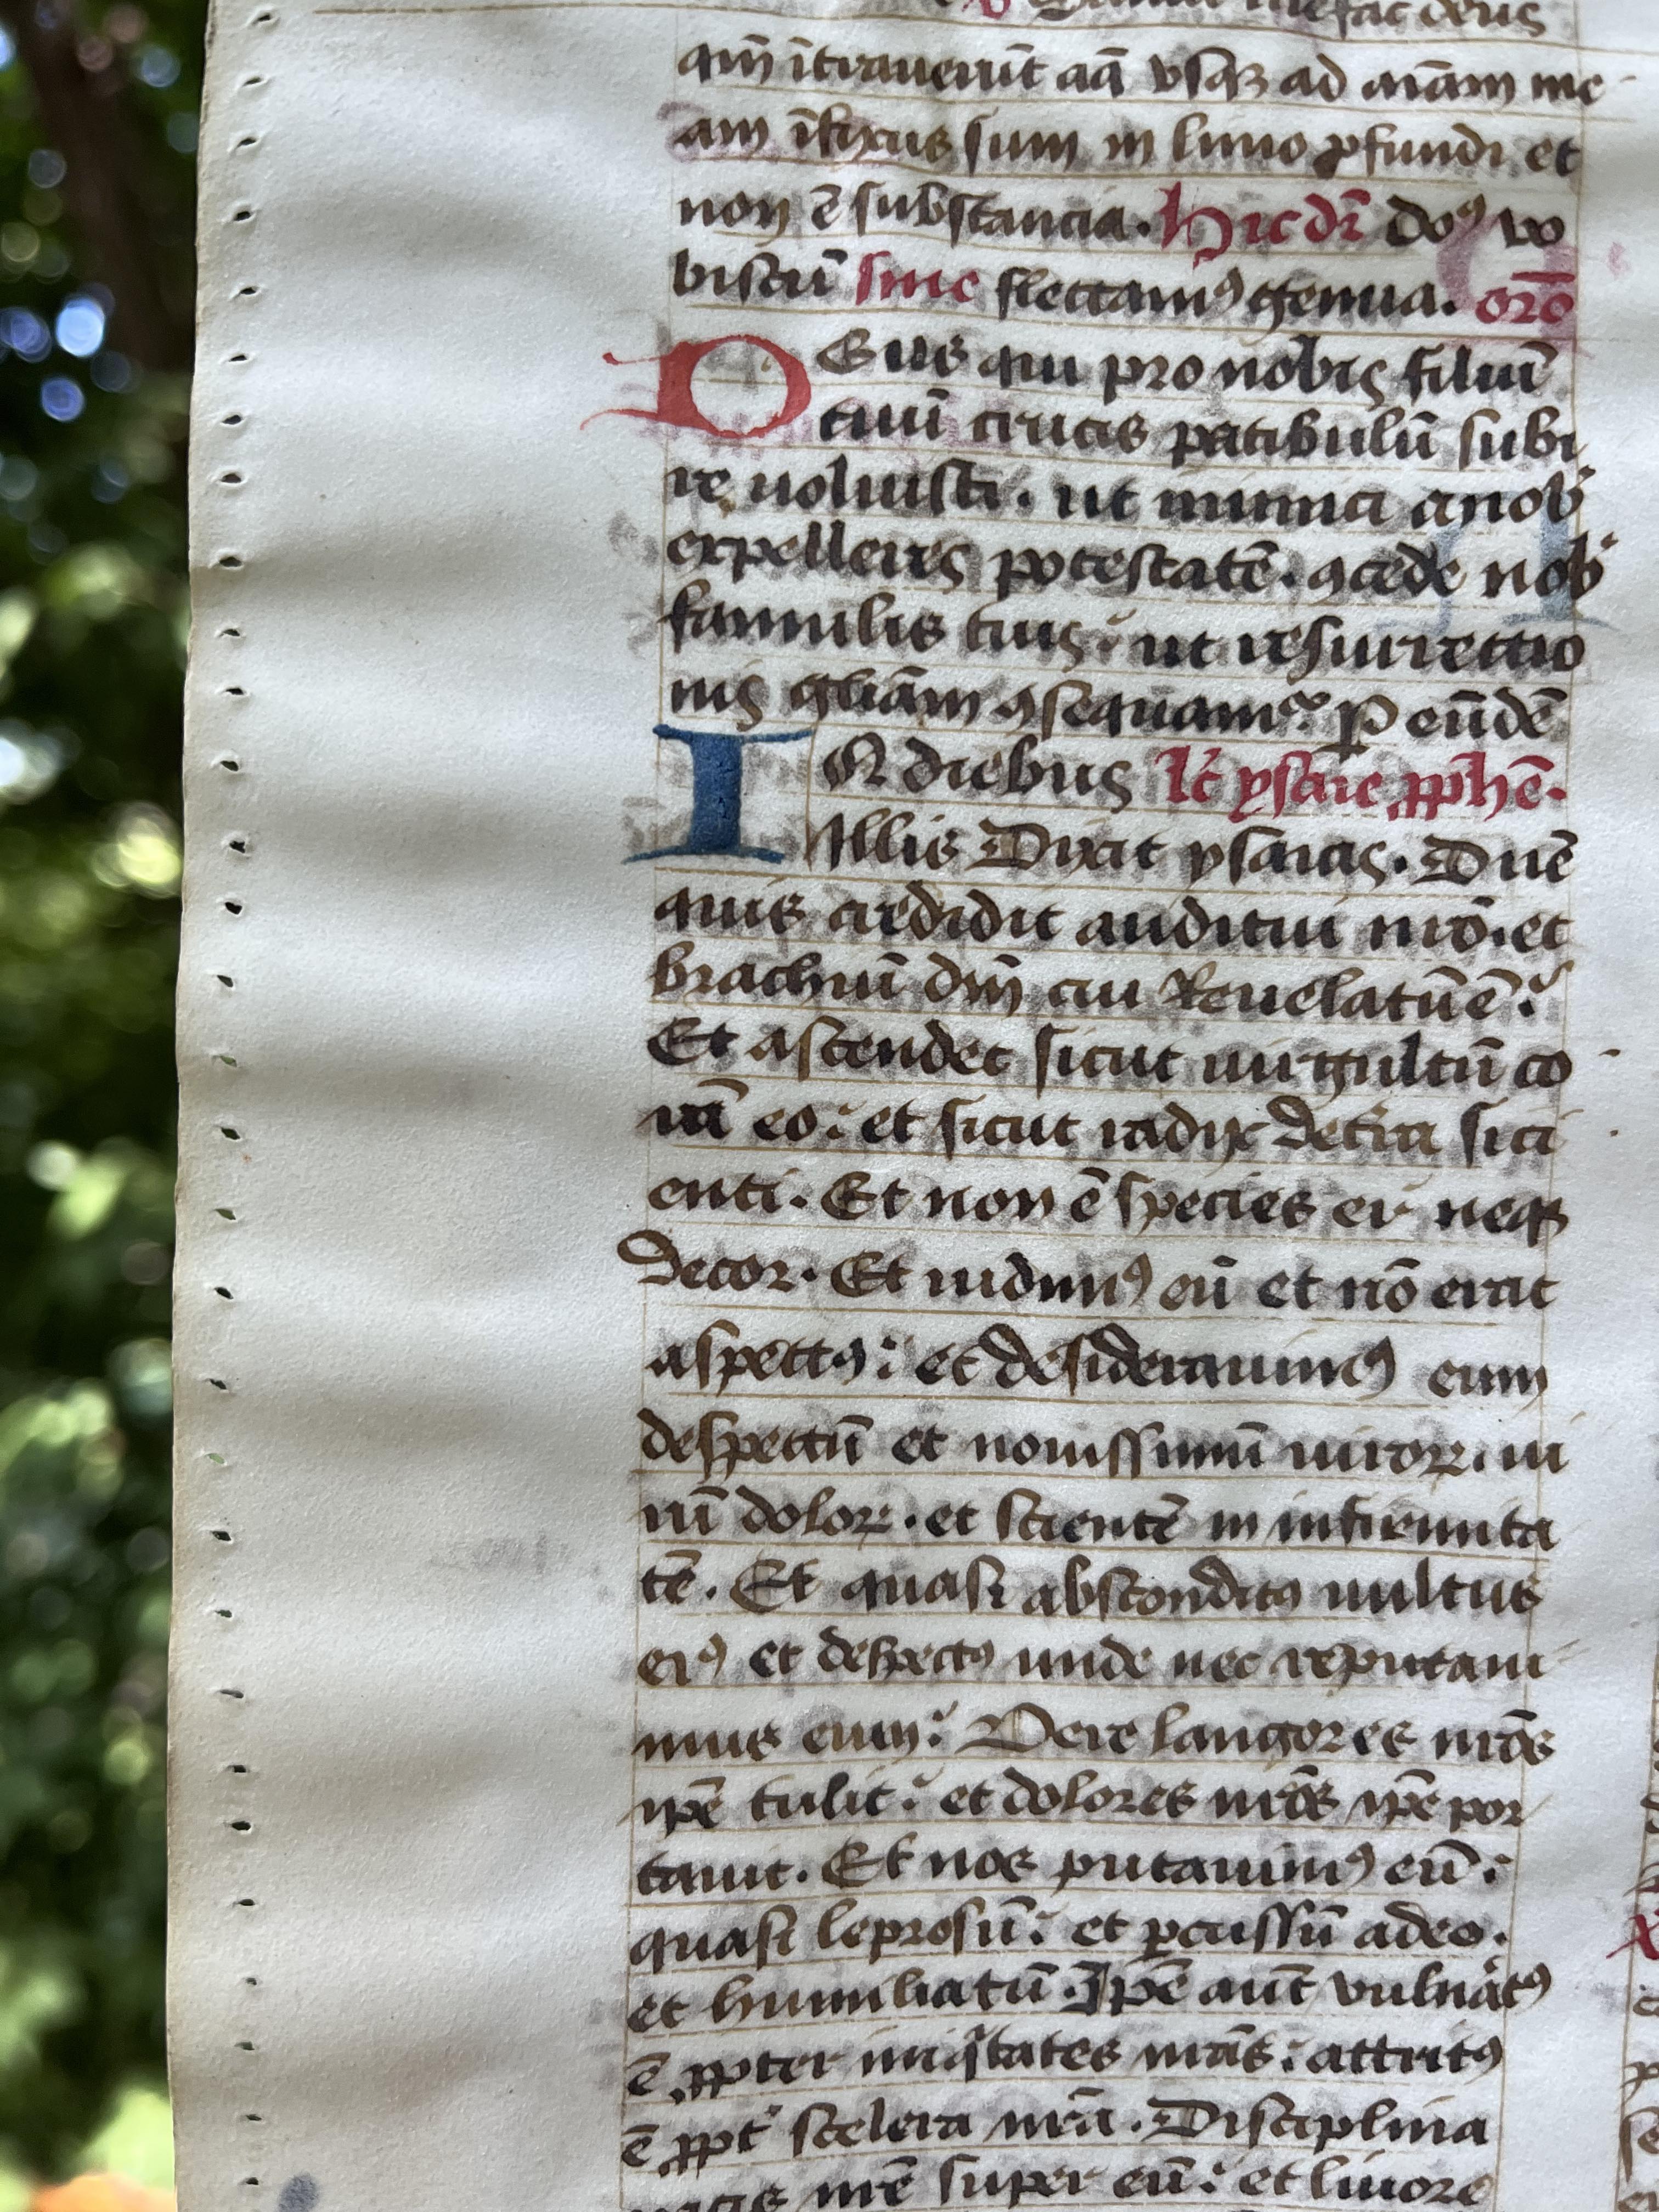 Saluum me fac deus
qm̄ ītrauerūt aq̄ vsq3 ad aīam me
am īfixus sum in limo ꝓfundi et
non ē substancia. Hic dr̄ do9 vo
biscū sine flectam9 genua. oro
DEus qui pro nobis filiū
tuū crucis patibulū subi
re uoluisti. ut inimici a nob
expelleres potestatē. ꝯcede nob
famulis tuis: ut resurrectio
nis gliam ꝯsequamr. ꝑ eūdē
IN diebus lc̄ ysaie ꝓphē.
Illis Dixit ysaias. Dnē
quis credidit auditui nrō. et
brachiū dnī cui Reuelatū ē:
Et ascendet sicut uirgultū co
rā eo: et sicut radix de tr̄a siti
enti. Et non ē species ei neq3
decor. Et uidim9 eū et nō erat
aspect9: et desiderauim9 eum
despectū et nouissimū uiroꝝ. ui
rū doloꝝ. et scientē in infirmita
tē. Et quasi abscondit9 uultus
ei9 et despect9 unde nec reputaui
mus eum: Vere langores nrōs
ipē tulit: et dolores nrōs ipē por
tauit. Et nos putauim9 eū:
quasi leprosū: et ꝑcussū a deo.
et humiliatū. Ipē aūt vulnāt9
ē ꝓpter iniq̄tates nrās: attrit9
ē ꝓpt scelera nrā. Disciplina
pacis nrē super eū: et liuore